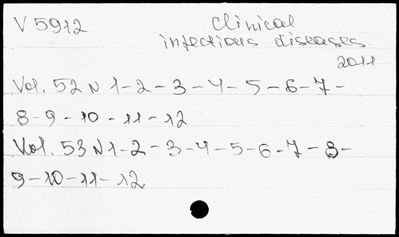 V 5912 Clinical
infectious diseases.
2011
Vol. 52 N 1-2-3-4-5-6-7-
8-9-10-11-12
Vol. 53 N 1-2-3-4-5-6-7-8-
9-10-11-12